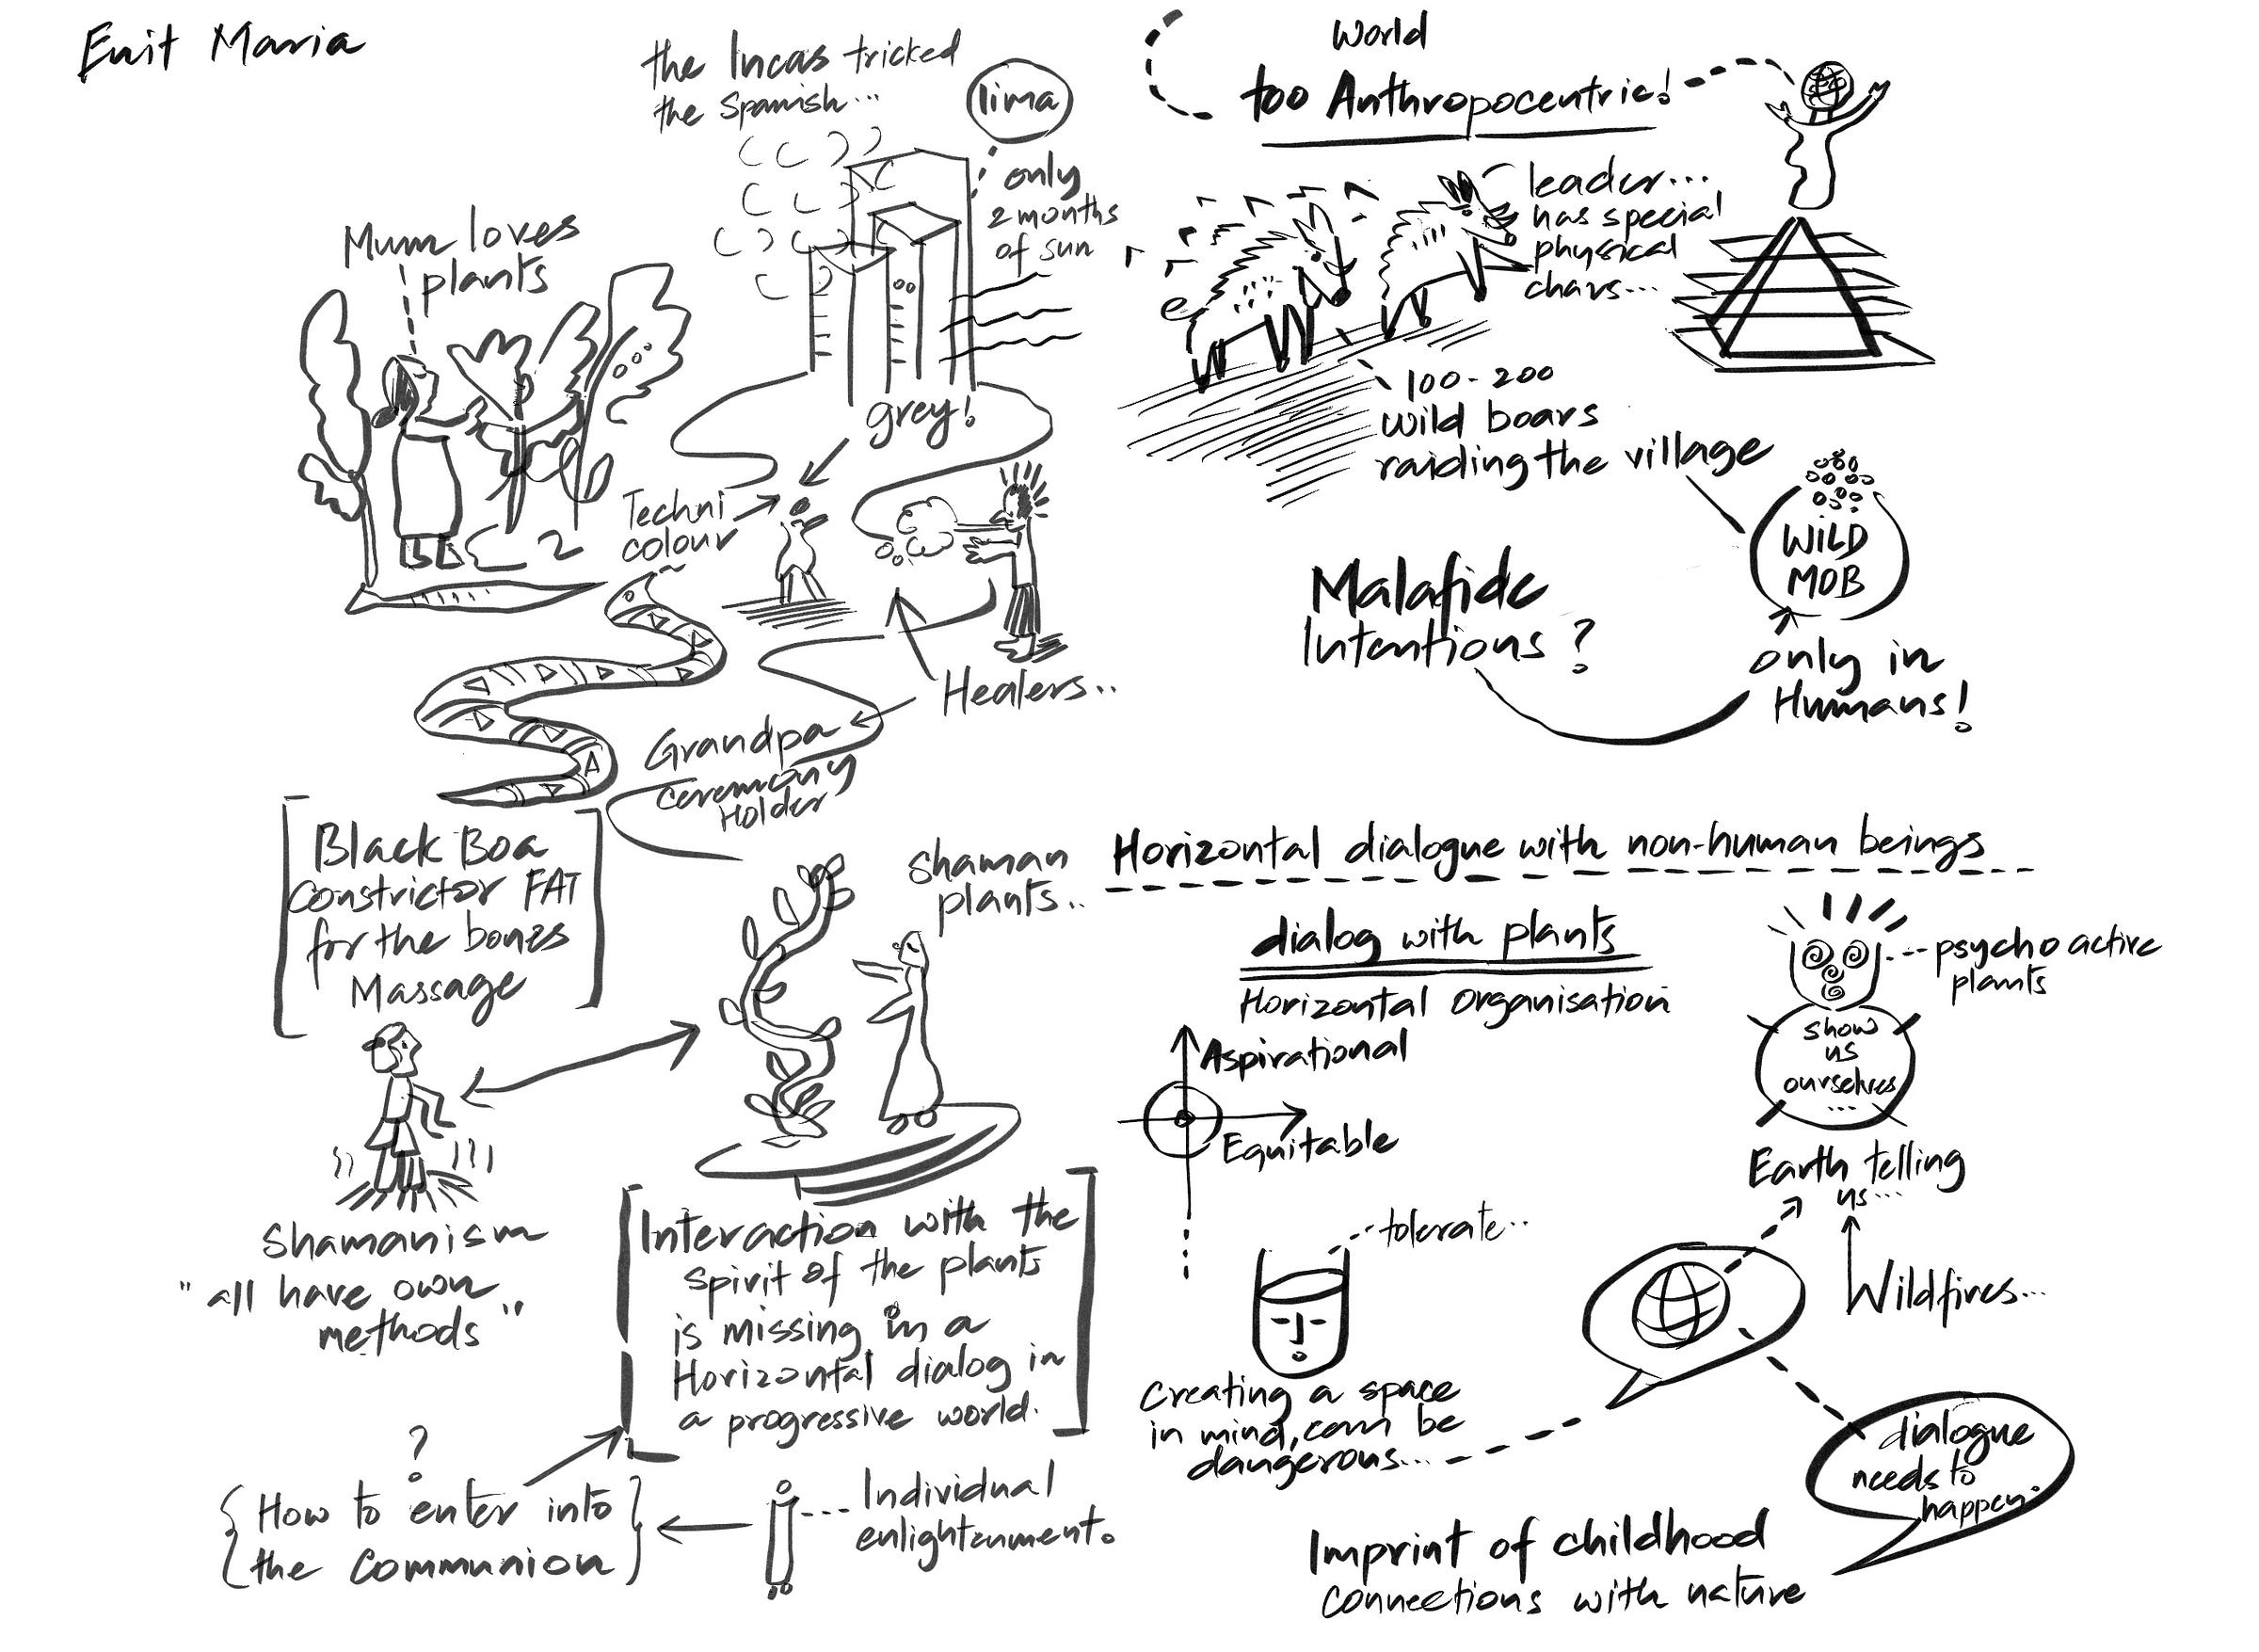 Enit Maria
the Incas tricked
the Spanish...
lima
only
2 months
of sun
Mum loves
plants
grey!
Techni
colour
Healers..
Grandpa
Ceremony
Holder
Black Boa
Constrictor FAT
for the bones
Massage
shaman
plants..
Shamanism
"all have own
methods"
Interaction with the
spirit of the plants
is missing in a
Horizontal dialog in
a progressive world.
?
{How to enter into
the communion}
Individual
enlightenment.
World
too Anthropocentric!
leader...
has special
physical
chars...
100-200
wild boars
raiding the village
WILD
MOB
Malafide
Intentions?
only in
Humans!
Horizontal dialogue with non-human beings
dialog with plants
Horizontal Organisation
Aspirational
Equitable
psychoactive
plants
show
us
ourselves
...
Earth telling
us...
Wildfires...
tolerate..
Creating a space
in mind, can be
dangerous...
dialogue
needs to
happen.
Imprint of childhood
connections with nature